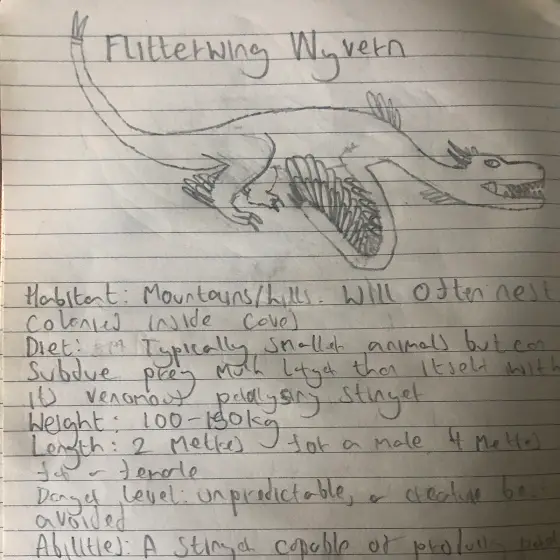 Flitterwing Wyvern
Habitat: Mountains/hills. Will often nest
Colonies inside Caves
Diet: Typically smaller animals but can
Subdue prey much larger than itself with
its venomous paralysing stinger
Weight: 100-150kg
Length: 2 Metres for a male, 4 Metres
for a female
Danger level: unpredictable, a creature be
avoided
Abilities: A Stinger capable of